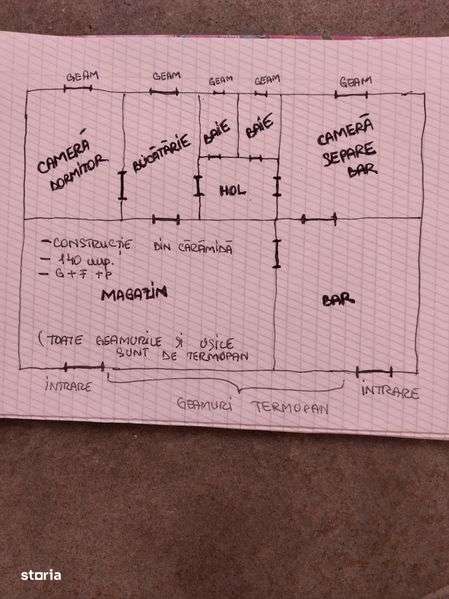 GEAM
GEAM
GEAM
GEAM
GEAM
CAMERĂ
DORMITOR
BUCĂTĂRIE
BAIE
BAIE
CAMERĂ
SEPARE
BAR
HOL
- CONSTRUCȚIE DIN CĂRĂMIDĂ
- 140 mp.
- G + F + P
MAGAZIN
BAR
(TOATE GEAMURILE ȘI UȘILE
SUNT DE TERMOPAN
INTRARE
INTRARE
GEAMURI TERMOPAN
storia